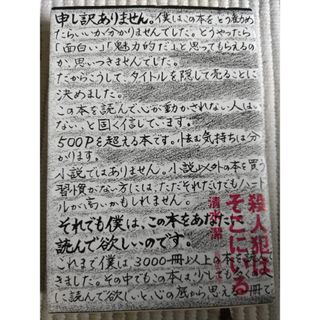 申し訳ありません。僕はこの本をどう勧め
たらいいか分かりませんでした。どうやったら
「面白い」「魅力的だ」と思ってもらえるの
か、思いつきませんでした。
だからこうして、タイトルを隠して売ることに
決めました。
この本を読んで心が動かされない人はい
ない、と固く信じています。
500Pを超える本です。怯む気持ちは分
かります。
小説ではありません。小説以外の本を買う
習慣がない方には、ただそれだけでもハード
ルが高いかもしれません。
それでも僕は、この本をあなたに
読んで欲しいのです。
これまで僕は3000冊以上の本を読
きました。その中でもこの本は、少しでも多く
に読んで欲しい、と心の底から思える一冊で
殺人犯は
そこにいる
清水潔